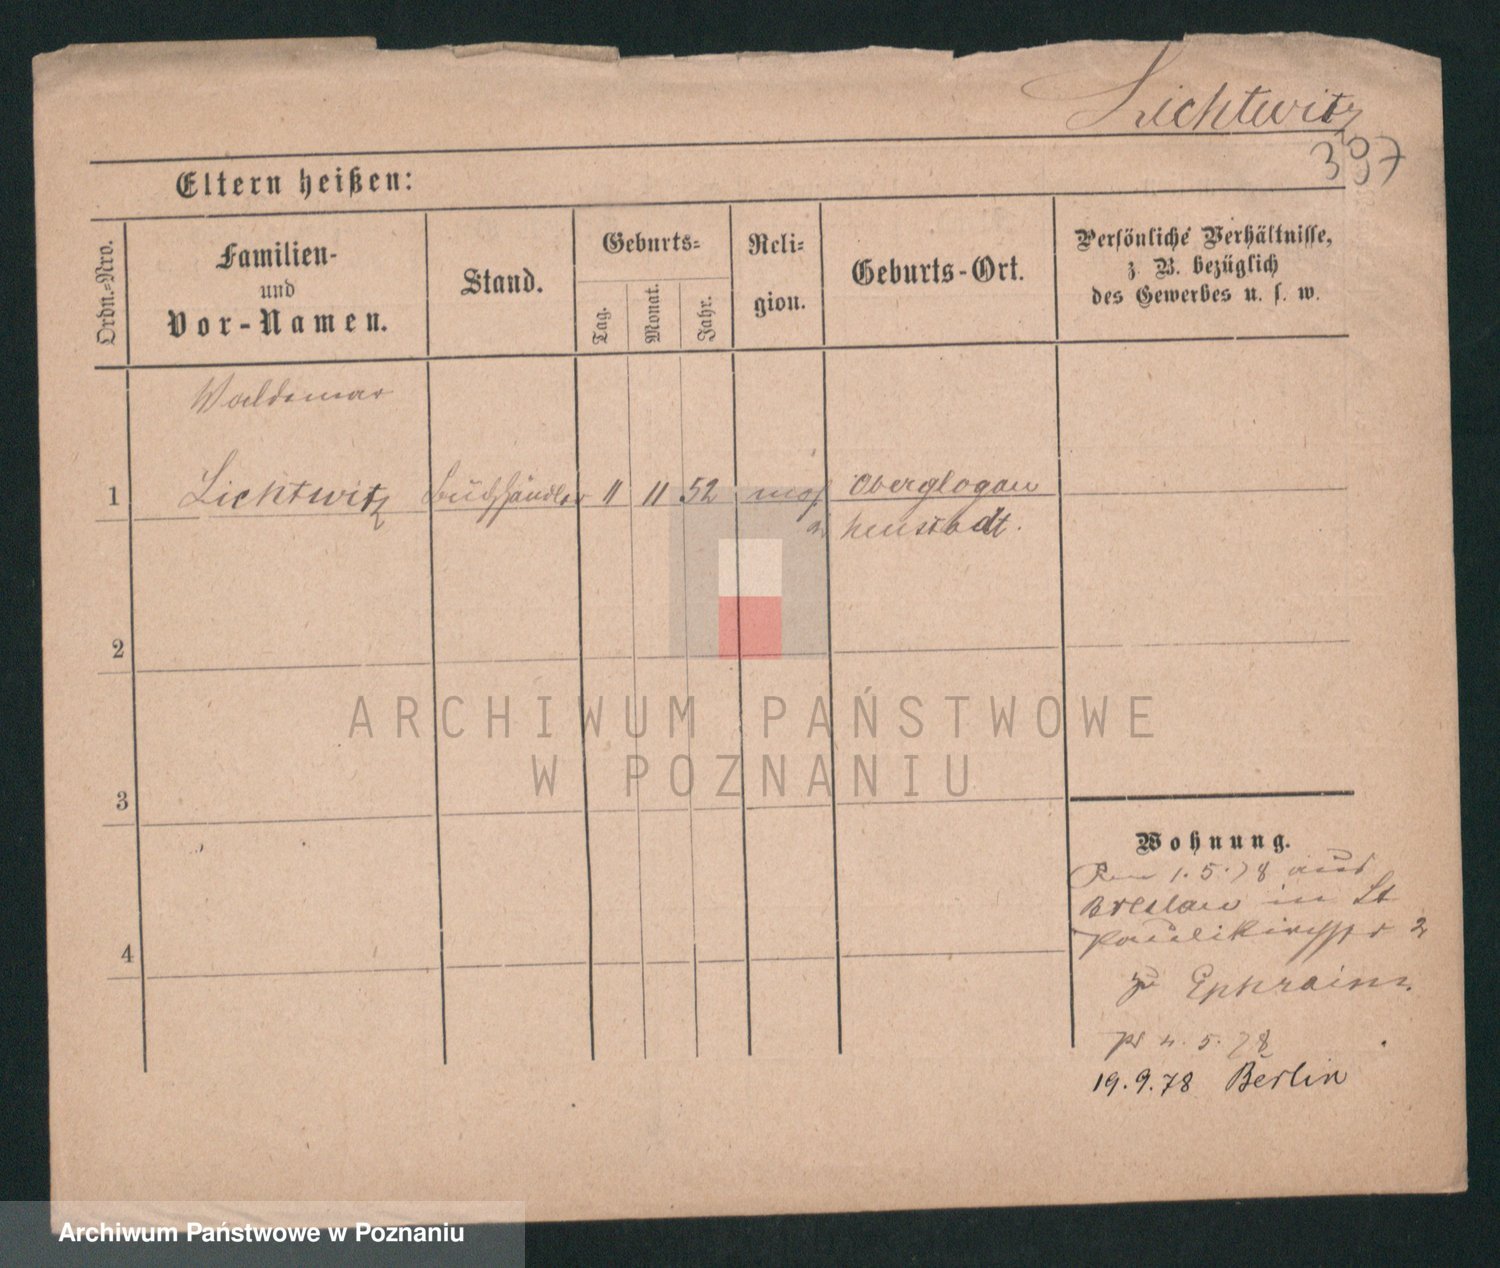 Lichtwitz
397
Eltern heißen:
Ordn.-Nro.
Familien-
und
Vor-Namen.
Stand.
Geburts-
Tag.
Monat.
Jahr.
Reli-
gion.
Geburts-Ort.
Persönliche Verhältnisse,
z. B. bezüglich
des Gewerbes u. s. w.
Waldemar
1 Lichtwitz Buchhändler 11 11 52 mos Oberglogau
Neustadt.
2
3
4
Wohnung.
1.5.78 aus
Breslau in St
Paulikirchstr 2
zu Ephraim.
pr 4.5.78
19.9.78 Berlin
ARCHIWUM PAŃSTWOWE
W POZNANIU
Archiwum Państwowe w Poznaniu